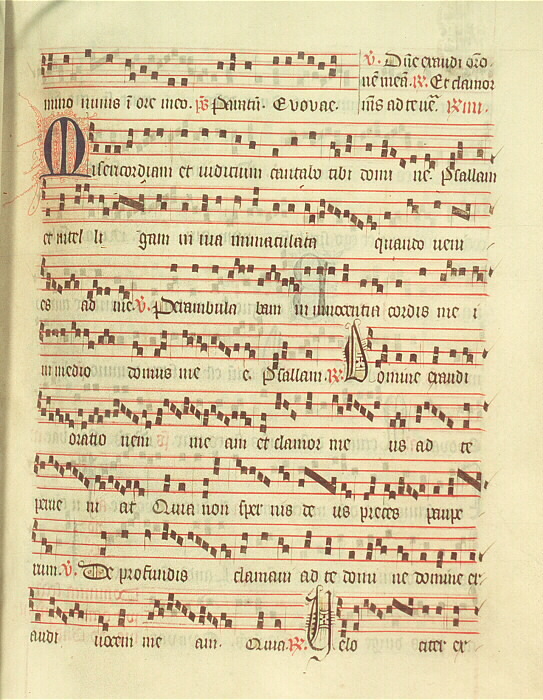 ℣. Dñe exaudi orõ
nẽ meã. ℟. Et clamor
mino nimis ĩ ore meo. p̃s Euovae. m̃s ad te ue᷃. ℟
Misericordiam et iudicium cantabo tibi domi ne. Psallam
et intel li gam in uia immaculata quando ueni
es ad me. ℣. Perambula bam in innocentia cordis me i
in medio domus me e. Psallam. ℟. Domine exaudi
oratio nem me am et clamor me us ad te
perue ni at Quia non sper nis de us preces paupe
rum. ℣. De profundis clamaui ad te domi ne domine ex
audi uocem me am. Quia. ℟. Uelo citer ex